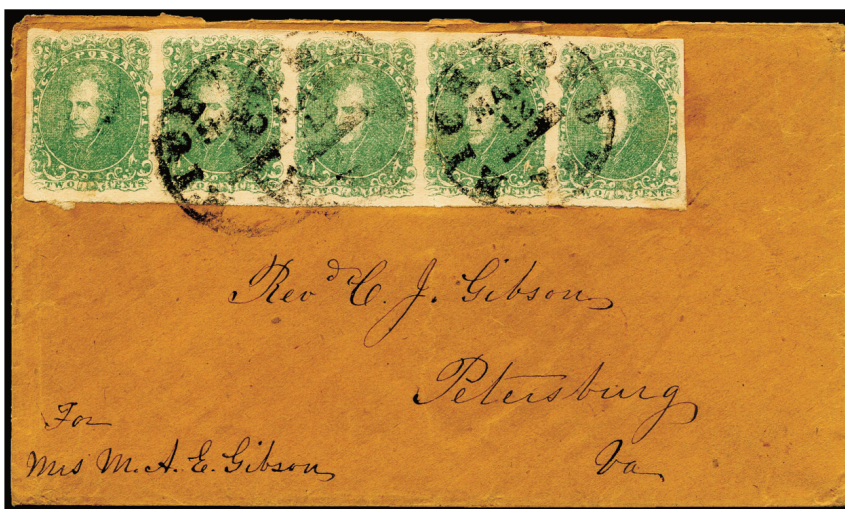 TWO CENTS TWO CENTS TWO CENTS TWO CENTS TWO CENTS
RICHMOND VA
MAR
12
Revd C. J. Gibson
Petersburg
Va
For
Mrs M. A. E. Gibson